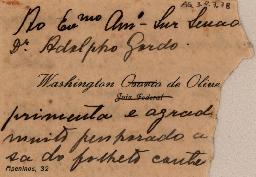 AG 3.2.7.18
Ao Exmo Amº Snr Senad
Dr. Adolpho Gordo.
Washington Osorio de Olive
Juiz Federal
primenta e agrad
muito penhorado a
sa do folheto conte
Apeninos, 32